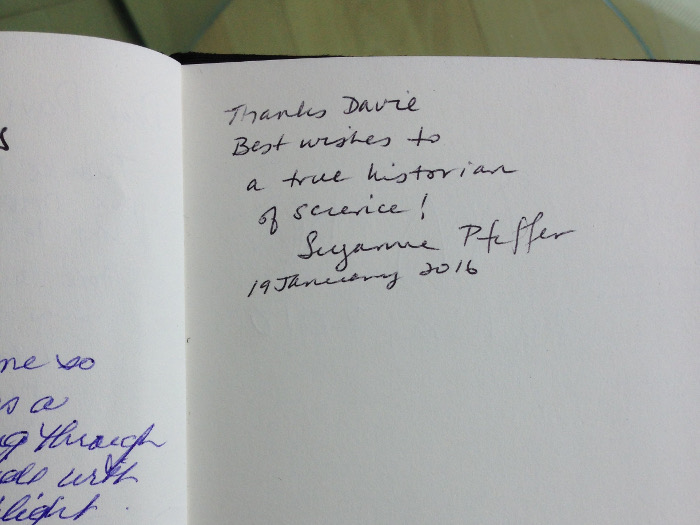 s
Thanks Davie
Best wishes to
a true historian
of science!
Suzanne Pfeffer
19 January 2016
me so
s a
ng through
with
light